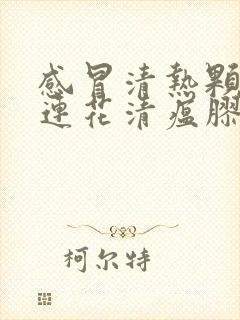 感冒清熱顆
連花清瘟膠
柯尔特